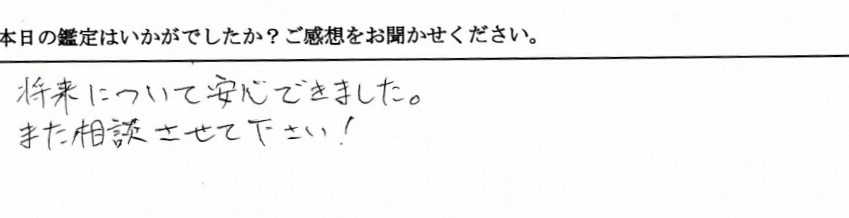 本日の鑑定はいかがでしたか？ご感想をお聞かせください。
将来について安心できました。
また相談させて下さい！